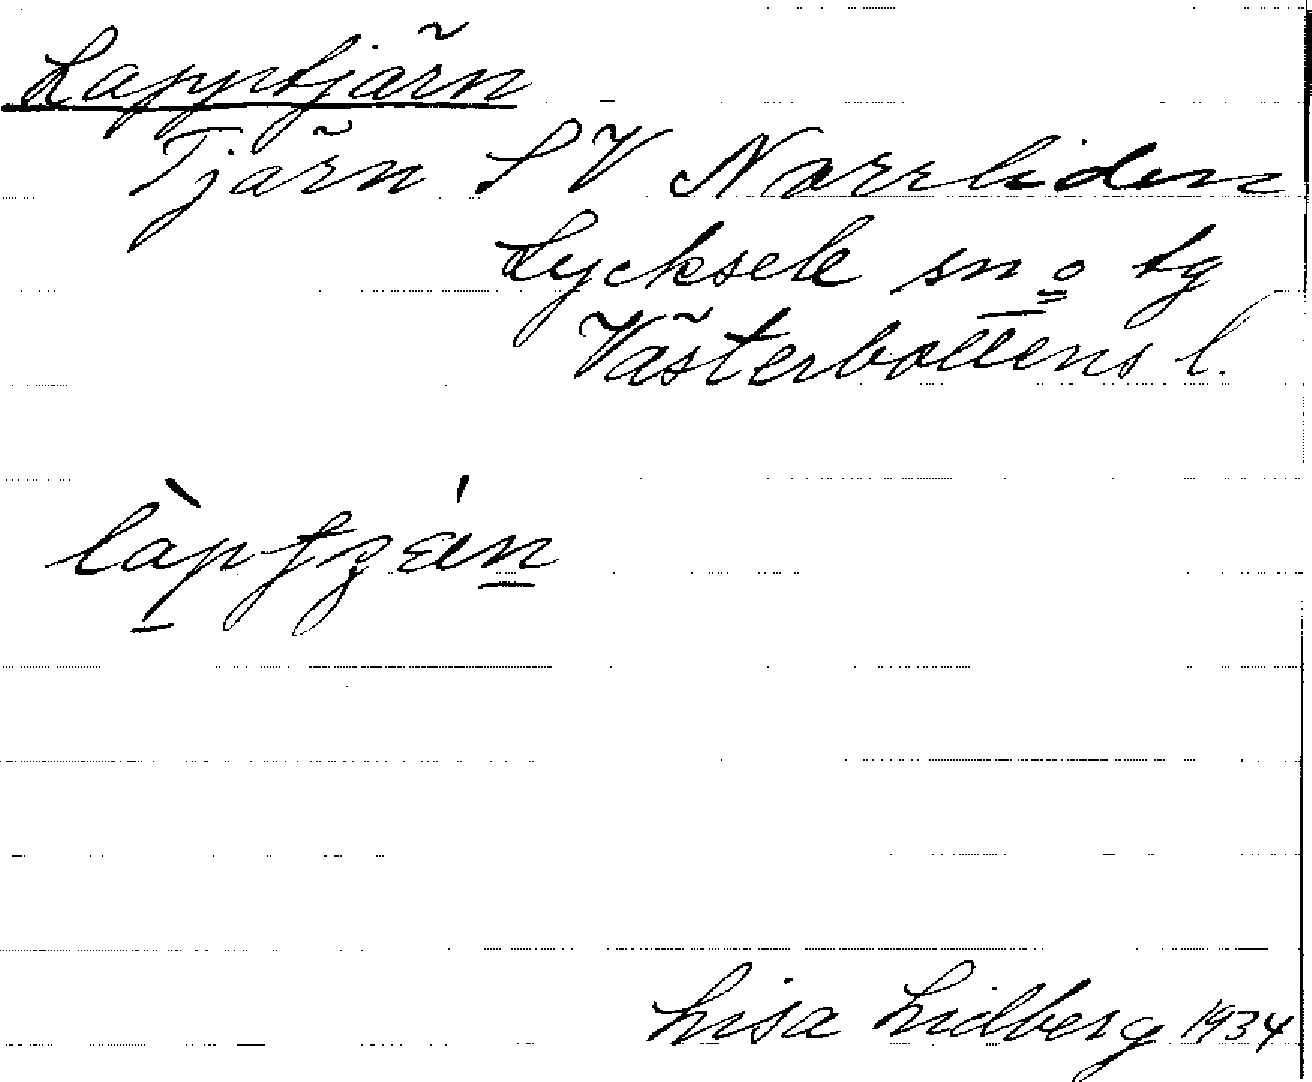 Lapptjärn
Tjärn SV Norrliden
Lycksele sn o tg
Västerbottens l.
Lisa Lidberg 1934